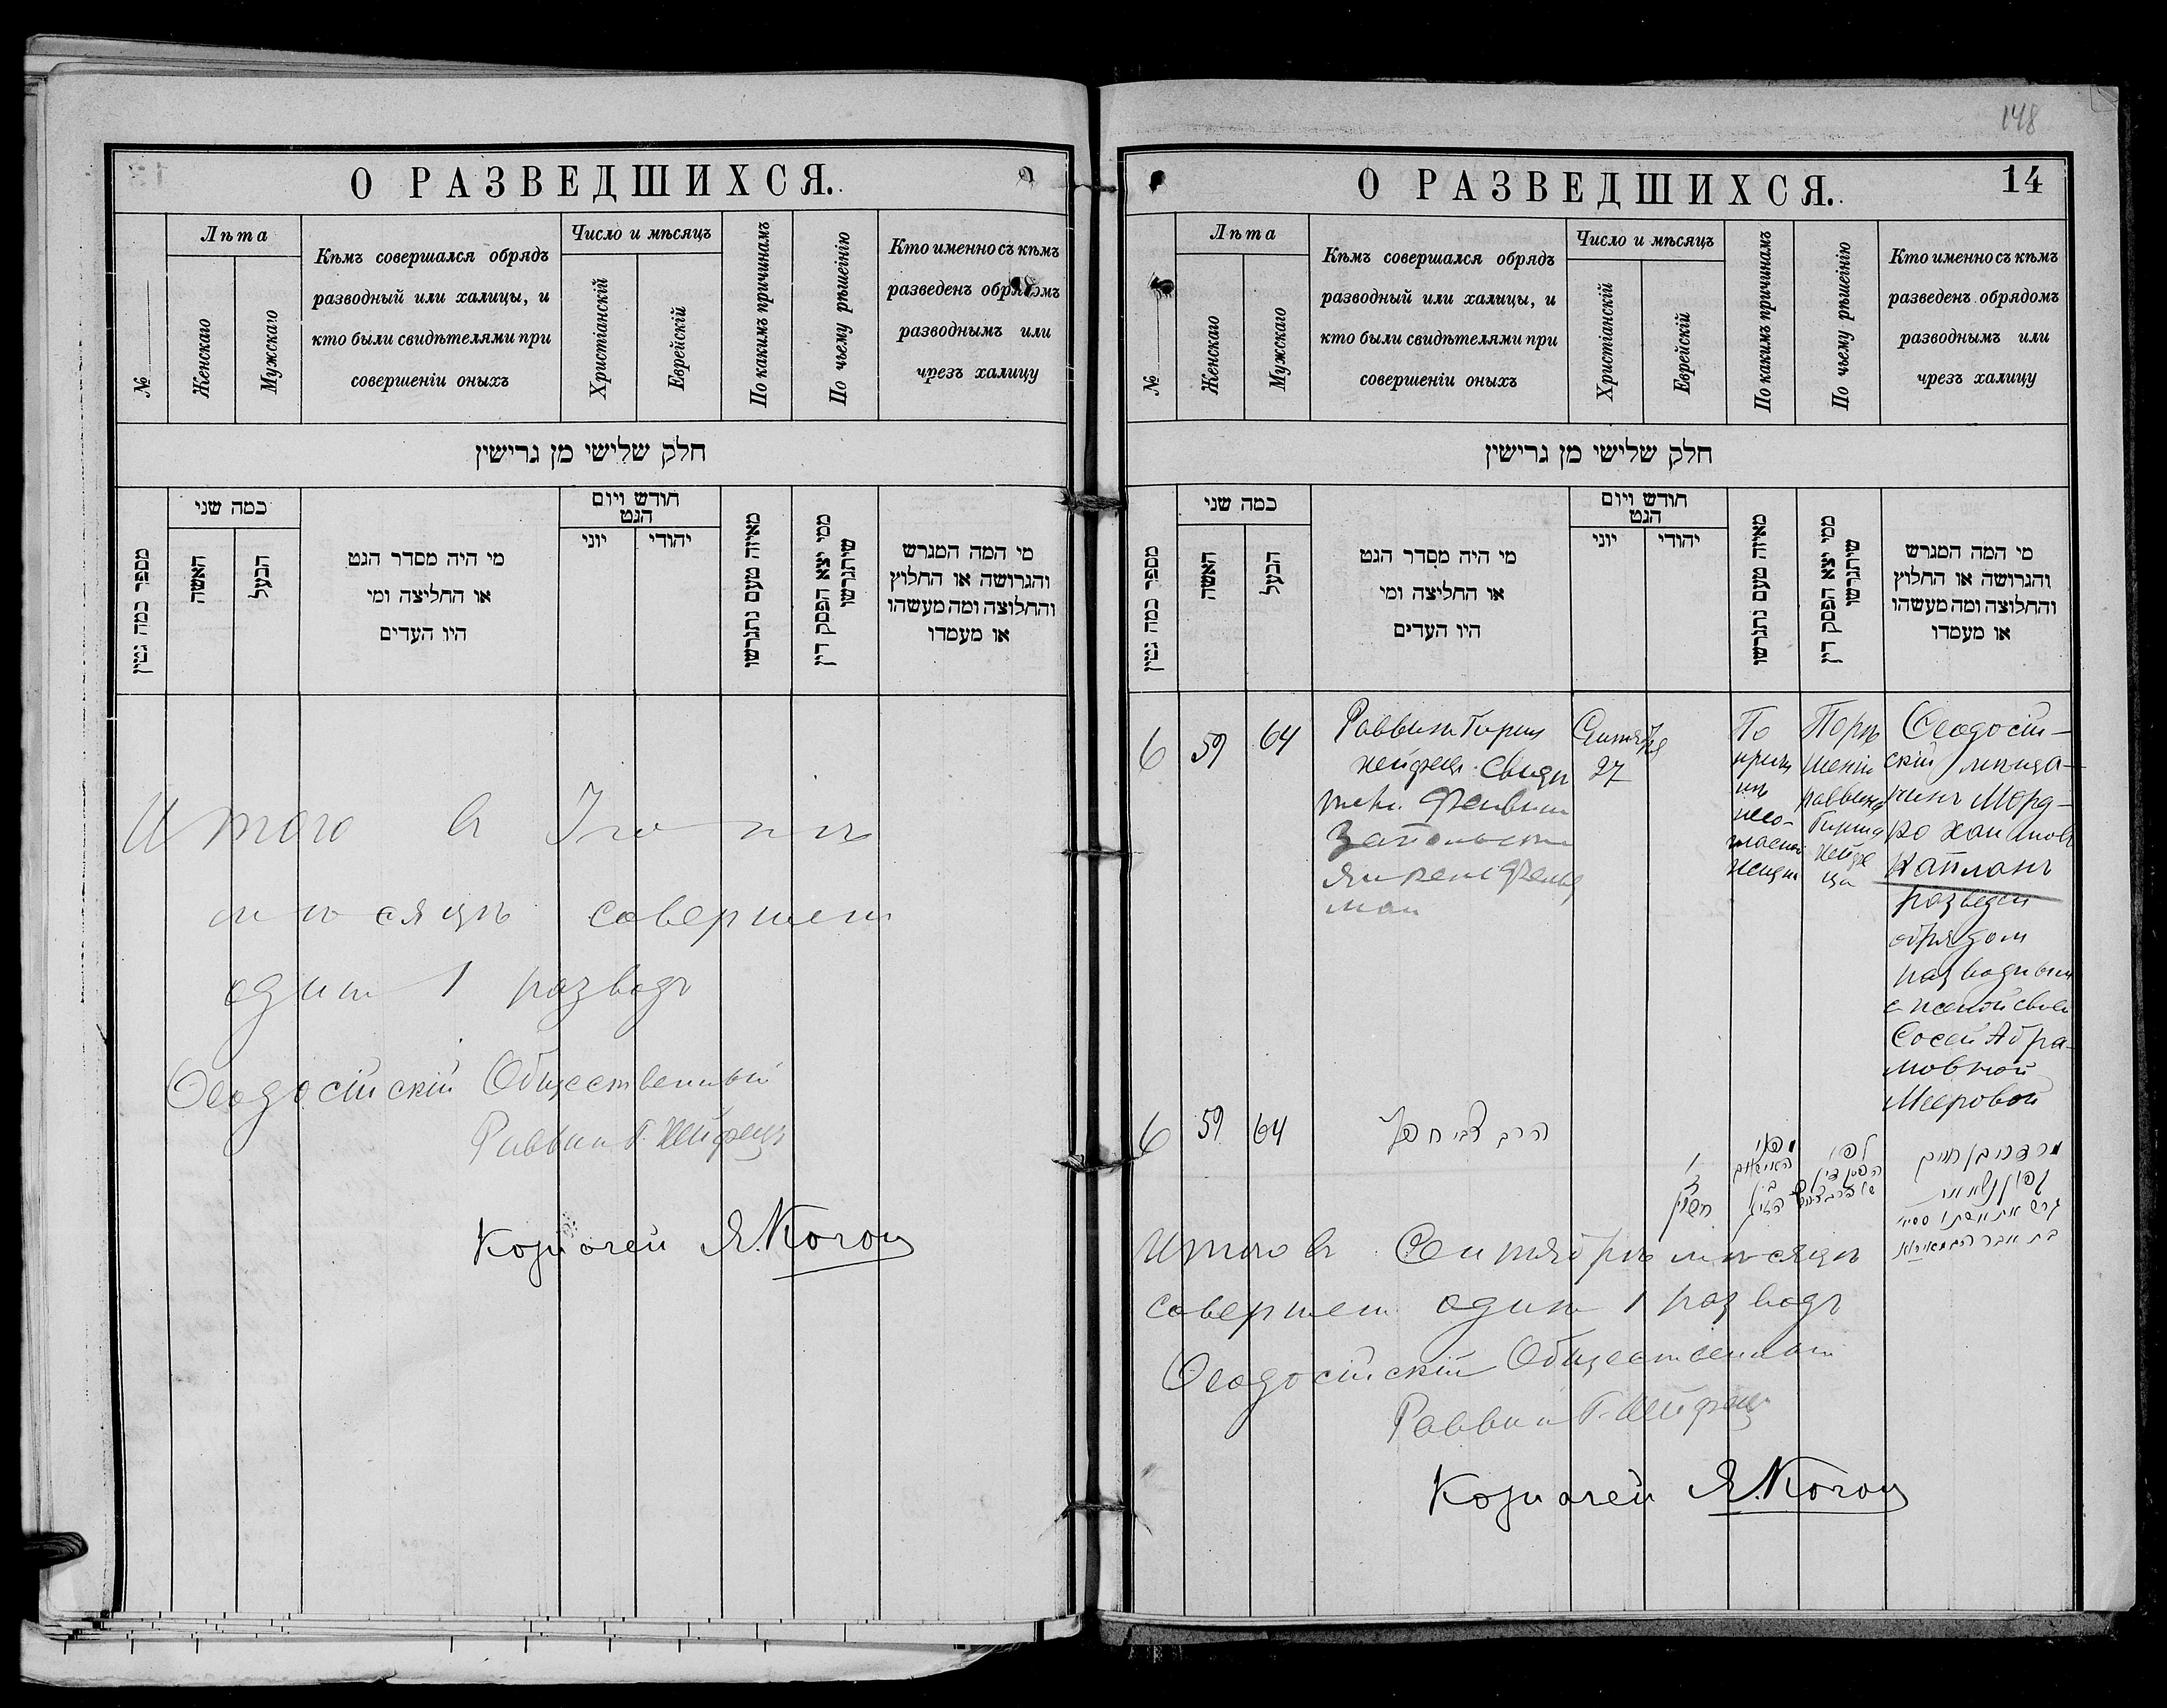 О РАЗВЕДШИХСЯ.
№
Лѣта
Женскаго
Мужскаго
Кѣмъ совершался обрядъ
разводный или халицы, и
кто были свидѣтелями при
совершеніи оныхъ
Число и мѣсяцъ
Христіанскій
Еврейскій
По какимъ причинамъ
По чьему рѣшенію
Кто именно съ кѣмъ
разведенъ обрядомъ
разводнымъ или
чрезъ халицу
חלק שלישי מן גרישין
מספר כמה גטין
כמה שני
האשה
הבעל
מי היה מסדר הגט
או החליצה ומי
היו העדים
חודש ויום
הגט
יוני
יהודי
מאיזה טעם נתגרשו
ממי יצא הפסק דין
שיתגרשו
מי המה המגרש
והגרושה או החלוץ
והחלוצה ומה מעשהו
או מעמדו
Итого въ Іюнѣ
мѣсяцѣ совершен
один 1 разводъ
Ѳеодосійскій Общественный
Раввин Г. Хейфецъ
Казначей Я. Коган
148
14
О РАЗВЕДШИХСЯ.
№
Лѣта
Женскаго
Мужскаго
Кѣмъ совершался обрядъ
разводный или халицы, и
кто были свидѣтелями при
совершеніи оныхъ
Число и мѣсяцъ
Христіанскій
Еврейскій
По какимъ причинамъ
По чьему рѣшенію
Кто именно съ кѣмъ
разведенъ обрядомъ
разводнымъ или
чрезъ халицу
חלק שלישי מן גרישין
מספר כמה גטין
כמה שני
האשה
הבעל
מי היה מסדר הגט
או החליצה ומי
היו העדים
חודש ויום
הגט
יוני
יהודי
מאיזה טעם נתגרשו
ממי יצא הפסק דין
שיתגרשו
מי המה המגרש
והגרושה או החלוץ
והחלוצה ומה מעשהו
או מעמדו
6
59
64
Раввин Гирш
Хейфец. Свидѣ
тели
Сентября
27
По
Порѣ
шенію
раввина
Гирша
Хейфе
ца
Ѳеодосій-
скій мѣща-
нинъ Морд-
ко Хаимов
Капланъ
разведен
обрядом
разводным
с женой своей
Сосей Абра-
мовной
Мееровой
6
59
64
הרב צבי חפץ
לפי
מרדכי בן חיים
קפלן
גרש את אשתו
Итого въ Сентябрѣ мѣсяцѣ
совершен один 1 разводъ
Ѳеодосійскій Общественный
Раввин Г. Хейфец
Казначей Я. Коган